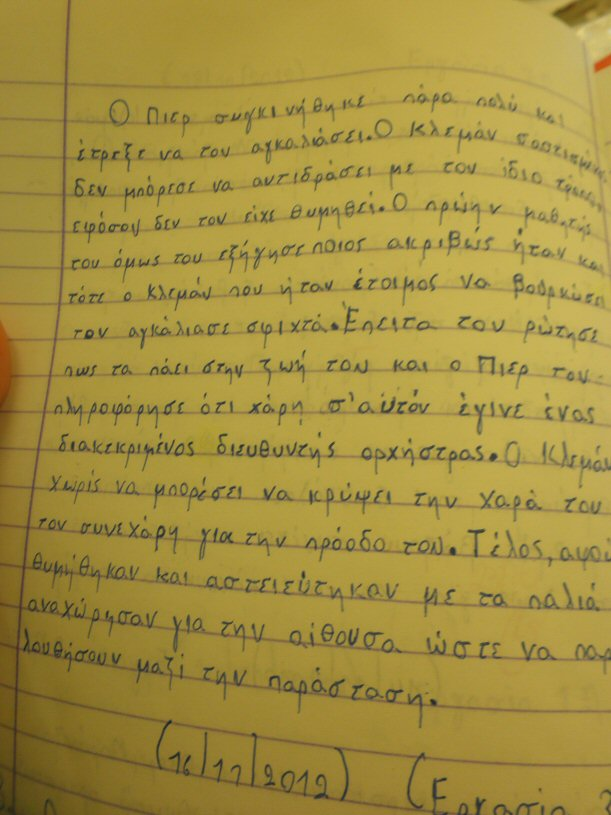 Ο Πιερ συγκινήθηκε πάρα πολύ και
έτρεξε να τον αγκαλιάσει. Ο Κλεμάν
δεν μπόρεσε να αντιδράσει με τον ίδιο τρόπο,
εφόσον δεν τον είχε θυμηθεί. Ο πρώην μαθητής
του όμως του εξήγησε ποιος ακριβώς ήταν και
τότε ο Κλεμάν που ήταν έτοιμος να βουρκώσει
τον αγκάλιασε σφιχτά. Έπειτα τον ρώτησε
πως τα πάει στην ζωή του και ο Πιερ τον
πληροφόρησε ότι χάρη σ'αυτόν έγινε ένας
διακεκριμένος διευθυντής ορχήστρας. Ο Κλεμάν
χωρίς να μπορέσει να κρύψει την χαρά του
τον συνεχάρη για την πρόοδο του. Τέλος, αφού
θυμήθηκαν και αστειεύτηκαν με τα παλιά
αναχώρησαν για την αίθουσα ώστε να παρ
λουθήσουν μαζί την παράσταση.
(16/11/2012) (Εργασία